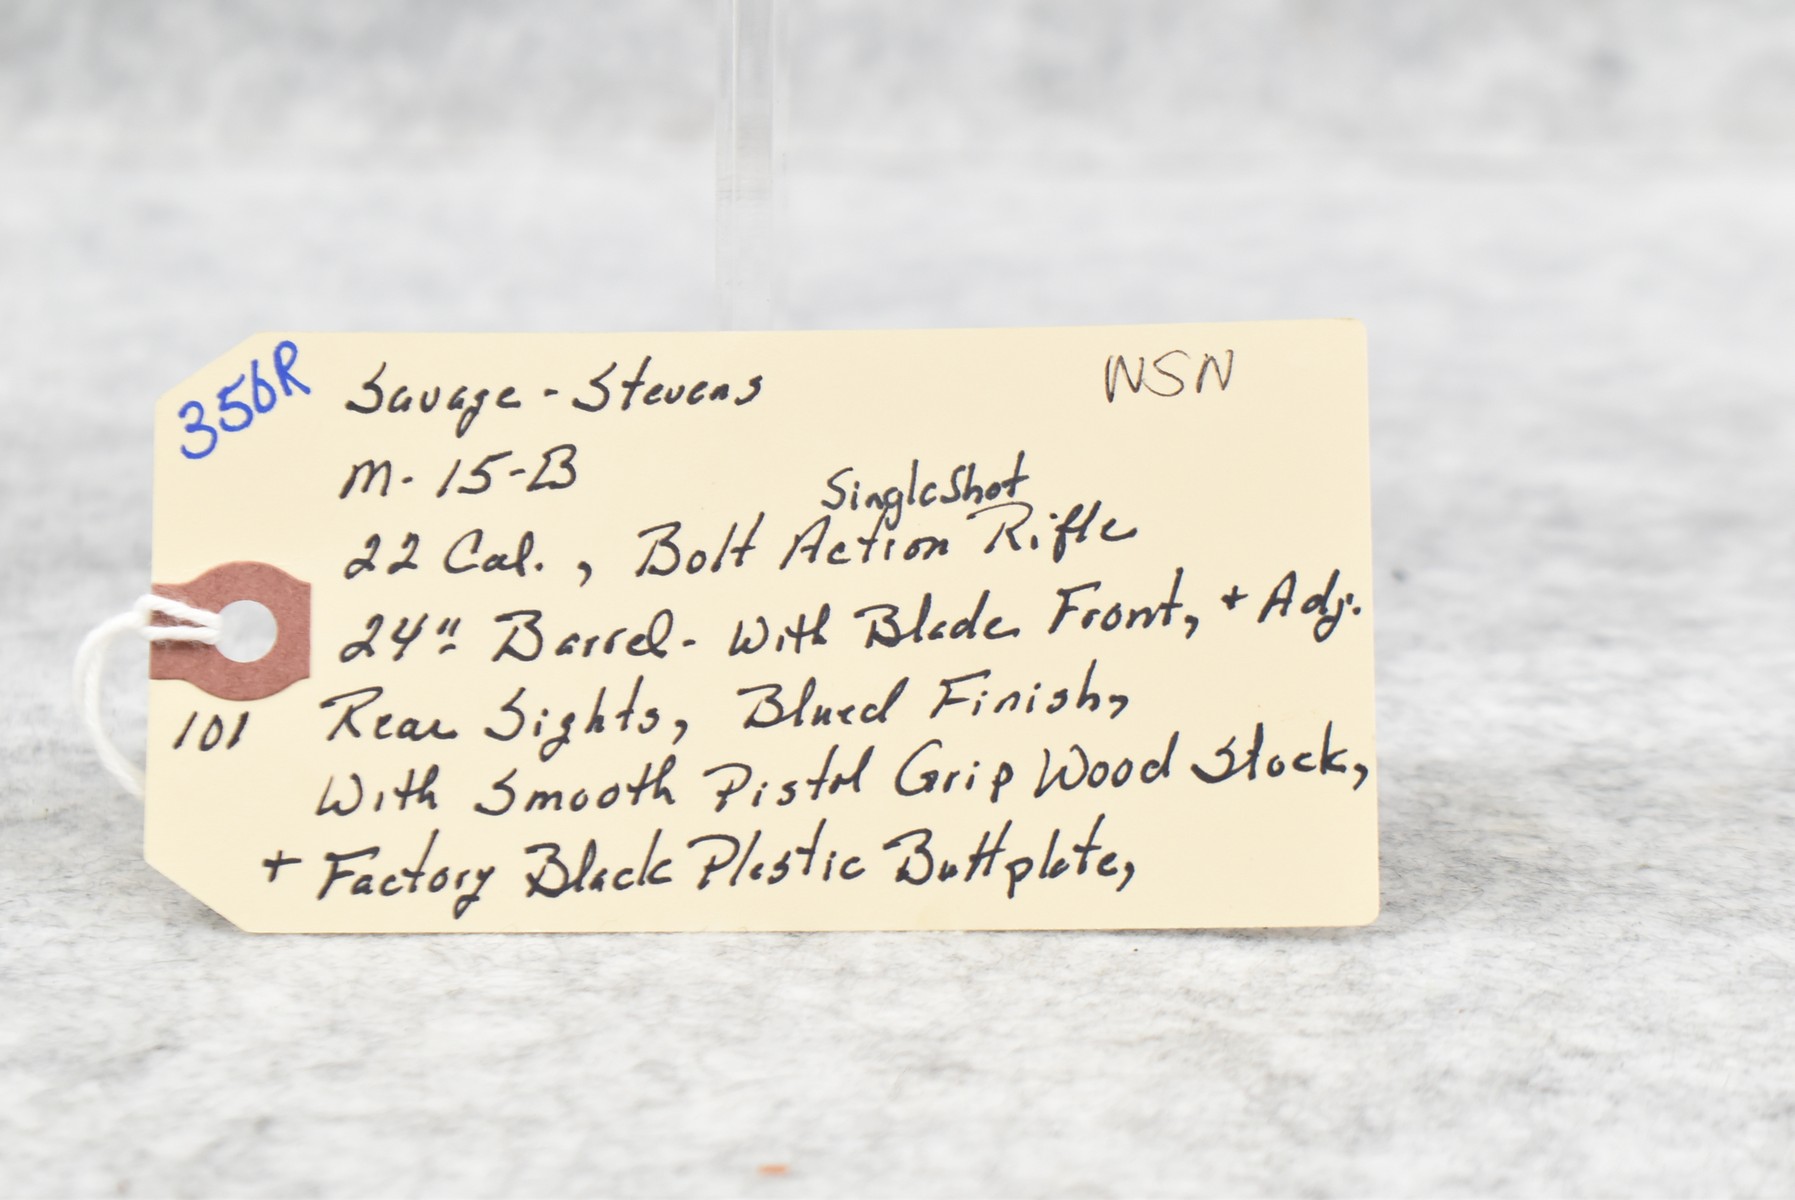 356R
Savage - Stevens
NSN
M. 15-B
Single Shot
22 Cal. , Bolt Action Rifle
24" Barrel - With Blade Front, + Adj.
Rear Sights, Blued Finish,
101
With Smooth Pistol Grip Wood Stock,
+ Factory Black Plastic Buttplate,